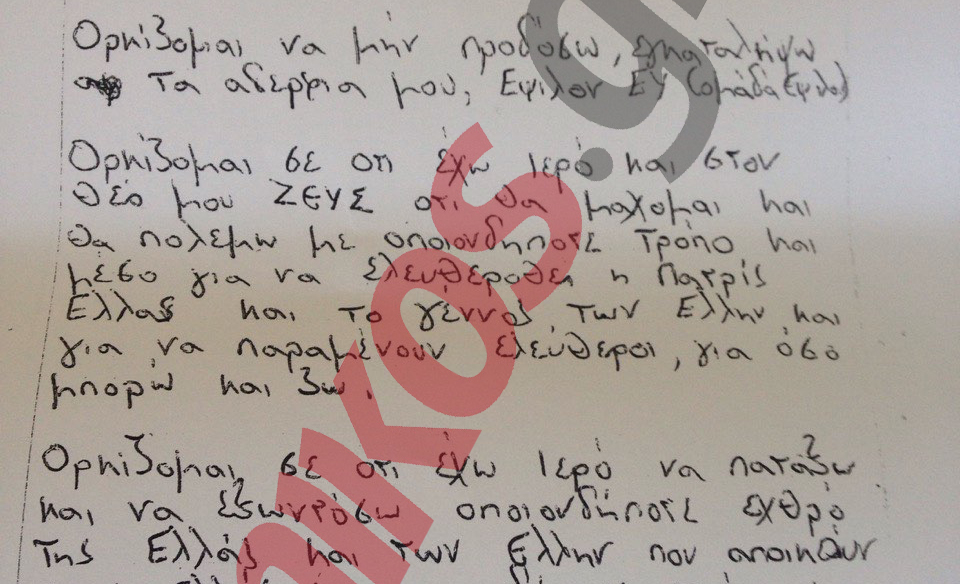 Ορκίζομαι να μήν προδόσω, εγκαταλήψω
τα αδερφια μου, Εψιλον ΕΥ (ομάδα Εψιλον)
Ορκίζομαι σε οτι έχω Ιερό και στον
θεό μου ΖΕΥΣ οτι θα μαχομαι και
θα πολεμω με οποιονδηποτε τροπο και
μέσο για να ελευθεροθεί η Πατρίς
Ελλας και το γέννος των Ελλην και
για να παραμένουν ελευθεροι, για όσο
μπορώ και ζω.
Ορκίζομαι, σε οτι έχω Ιερό να παταξω
και να εξωντρόσω οποιονδήποτε εχθρό
της Ελλάς και των Ελλην που αποικουν
nikos.gr